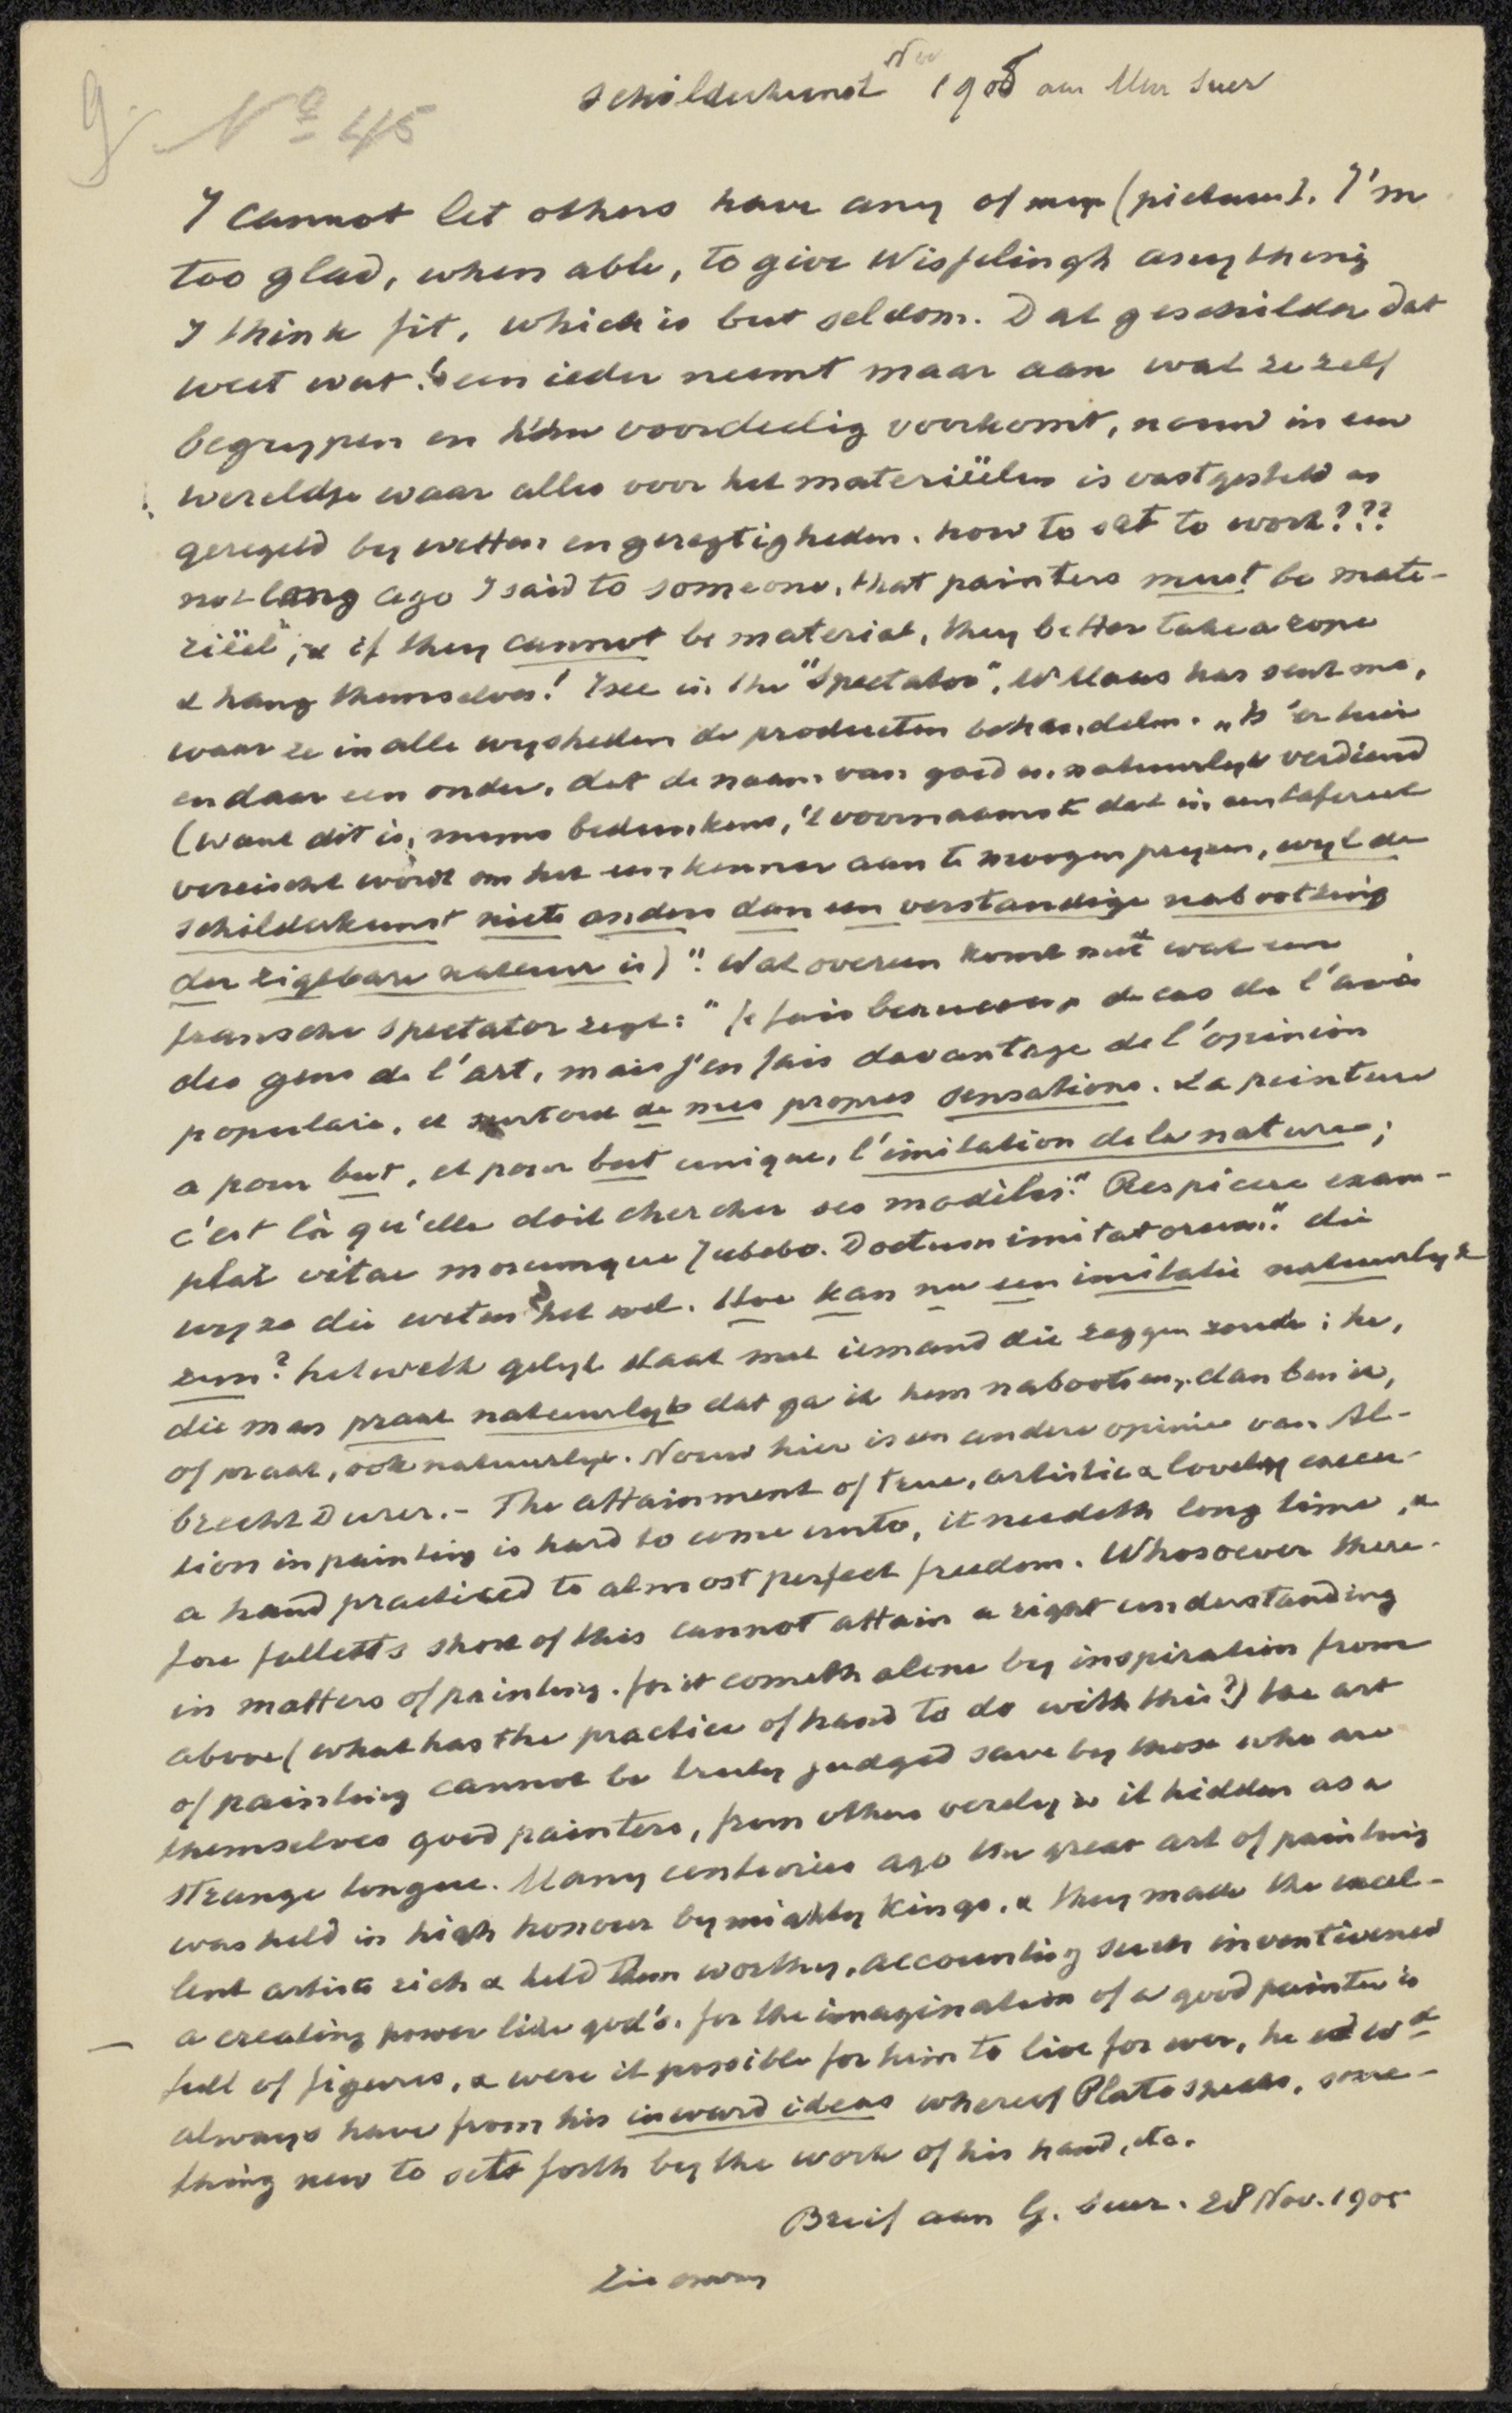 g. Nº 45
schilderkunst Nov 1905 aan Mvr Suer
I cannot let others have any of my (pictures). I'm
too glad, when able, to give Wisselingh anything
I think fit, which is but seldom. Dat geschilder dat
weet wat! een ieder neemt maar aan wat ze zelf
begrypen en hem voordeelig voorkomt, nouw in een
wereldje waar alles voor het materiëelen is vastgesteld en
geregeld by wetten en geregtigheden. how to set to work???
not long ago I said to someone, that painters must be mate-
riëel, & if they cannot be material, they better take a rope
& hang themselves! I see in the "Spectator", W Maris has sent me,
waar ze in alle wysheden de producten behandelen. „Is 'er hier
en daar een onder, dat de naam van goed en natuurlyk verdiend
(want dit is, myns bedunkens, 't voornaamste dat in een tafereel
vereischt wordt om het een kenner aan te moogen pryzen, wyl de
schilderkunst niets anders dan een verstandige nabootsing
der zigtbare natuur is)". Wat overeen komt met wat een
fransche Spectator zegt: "Je fais beaucoup de cas de l'avis
des gens de l'art, mais j'en fais davantage de l'opinion
populaire, et surtout de mes propres sensations. La peinture
a pour but, et pour but unique, l'imitation de la nature;
c'est là qu'elle doit chercher ses modèles." Respicere exem-
plar vitae morumque Jubebo. Doctum imitatorem." die
wyze die weten het wel. Hoe kan nu een imitatie natuurlyk
zyn? hetwelk gelyk staat met iemand die zeggen zoude; he,
die man praat natuurlyk dat ga ik hem nabootsen, dan ben ik,
of praat, ook natuurlyk. Nouw hier is een andere opinie van Al-
brecht Durer. - The attainment of true, artistic & lovely execu-
tion in painting is hard to come unto, it needeth long time, &
a hand practiced to almost perfect freedom. Whosoever there-
fore falleth short of this cannot attain a right understanding
in matters of painting. for it cometh alone by inspiration from
above (what has the practice of hand to do with this?) the art
of painting cannot be truly judged save by those who are
themselves good painters, from others verely is it hidden as a
strange tongue. Many centuries ago the great art of painting
was held in high honour by mighty Kings, & they made the excel-
lent artists rich & held them worthy, accounting such inventiveness
a creating power like god's. for the imagination of a good painter is
full of figures, & were it possible for him to live for ever, he wd
always have from his inward ideas whereof Plato speaks, some-
thing new to sett forth by the work of his hand, etc.
Breif aan G. Suer. 28 Nov. 1905